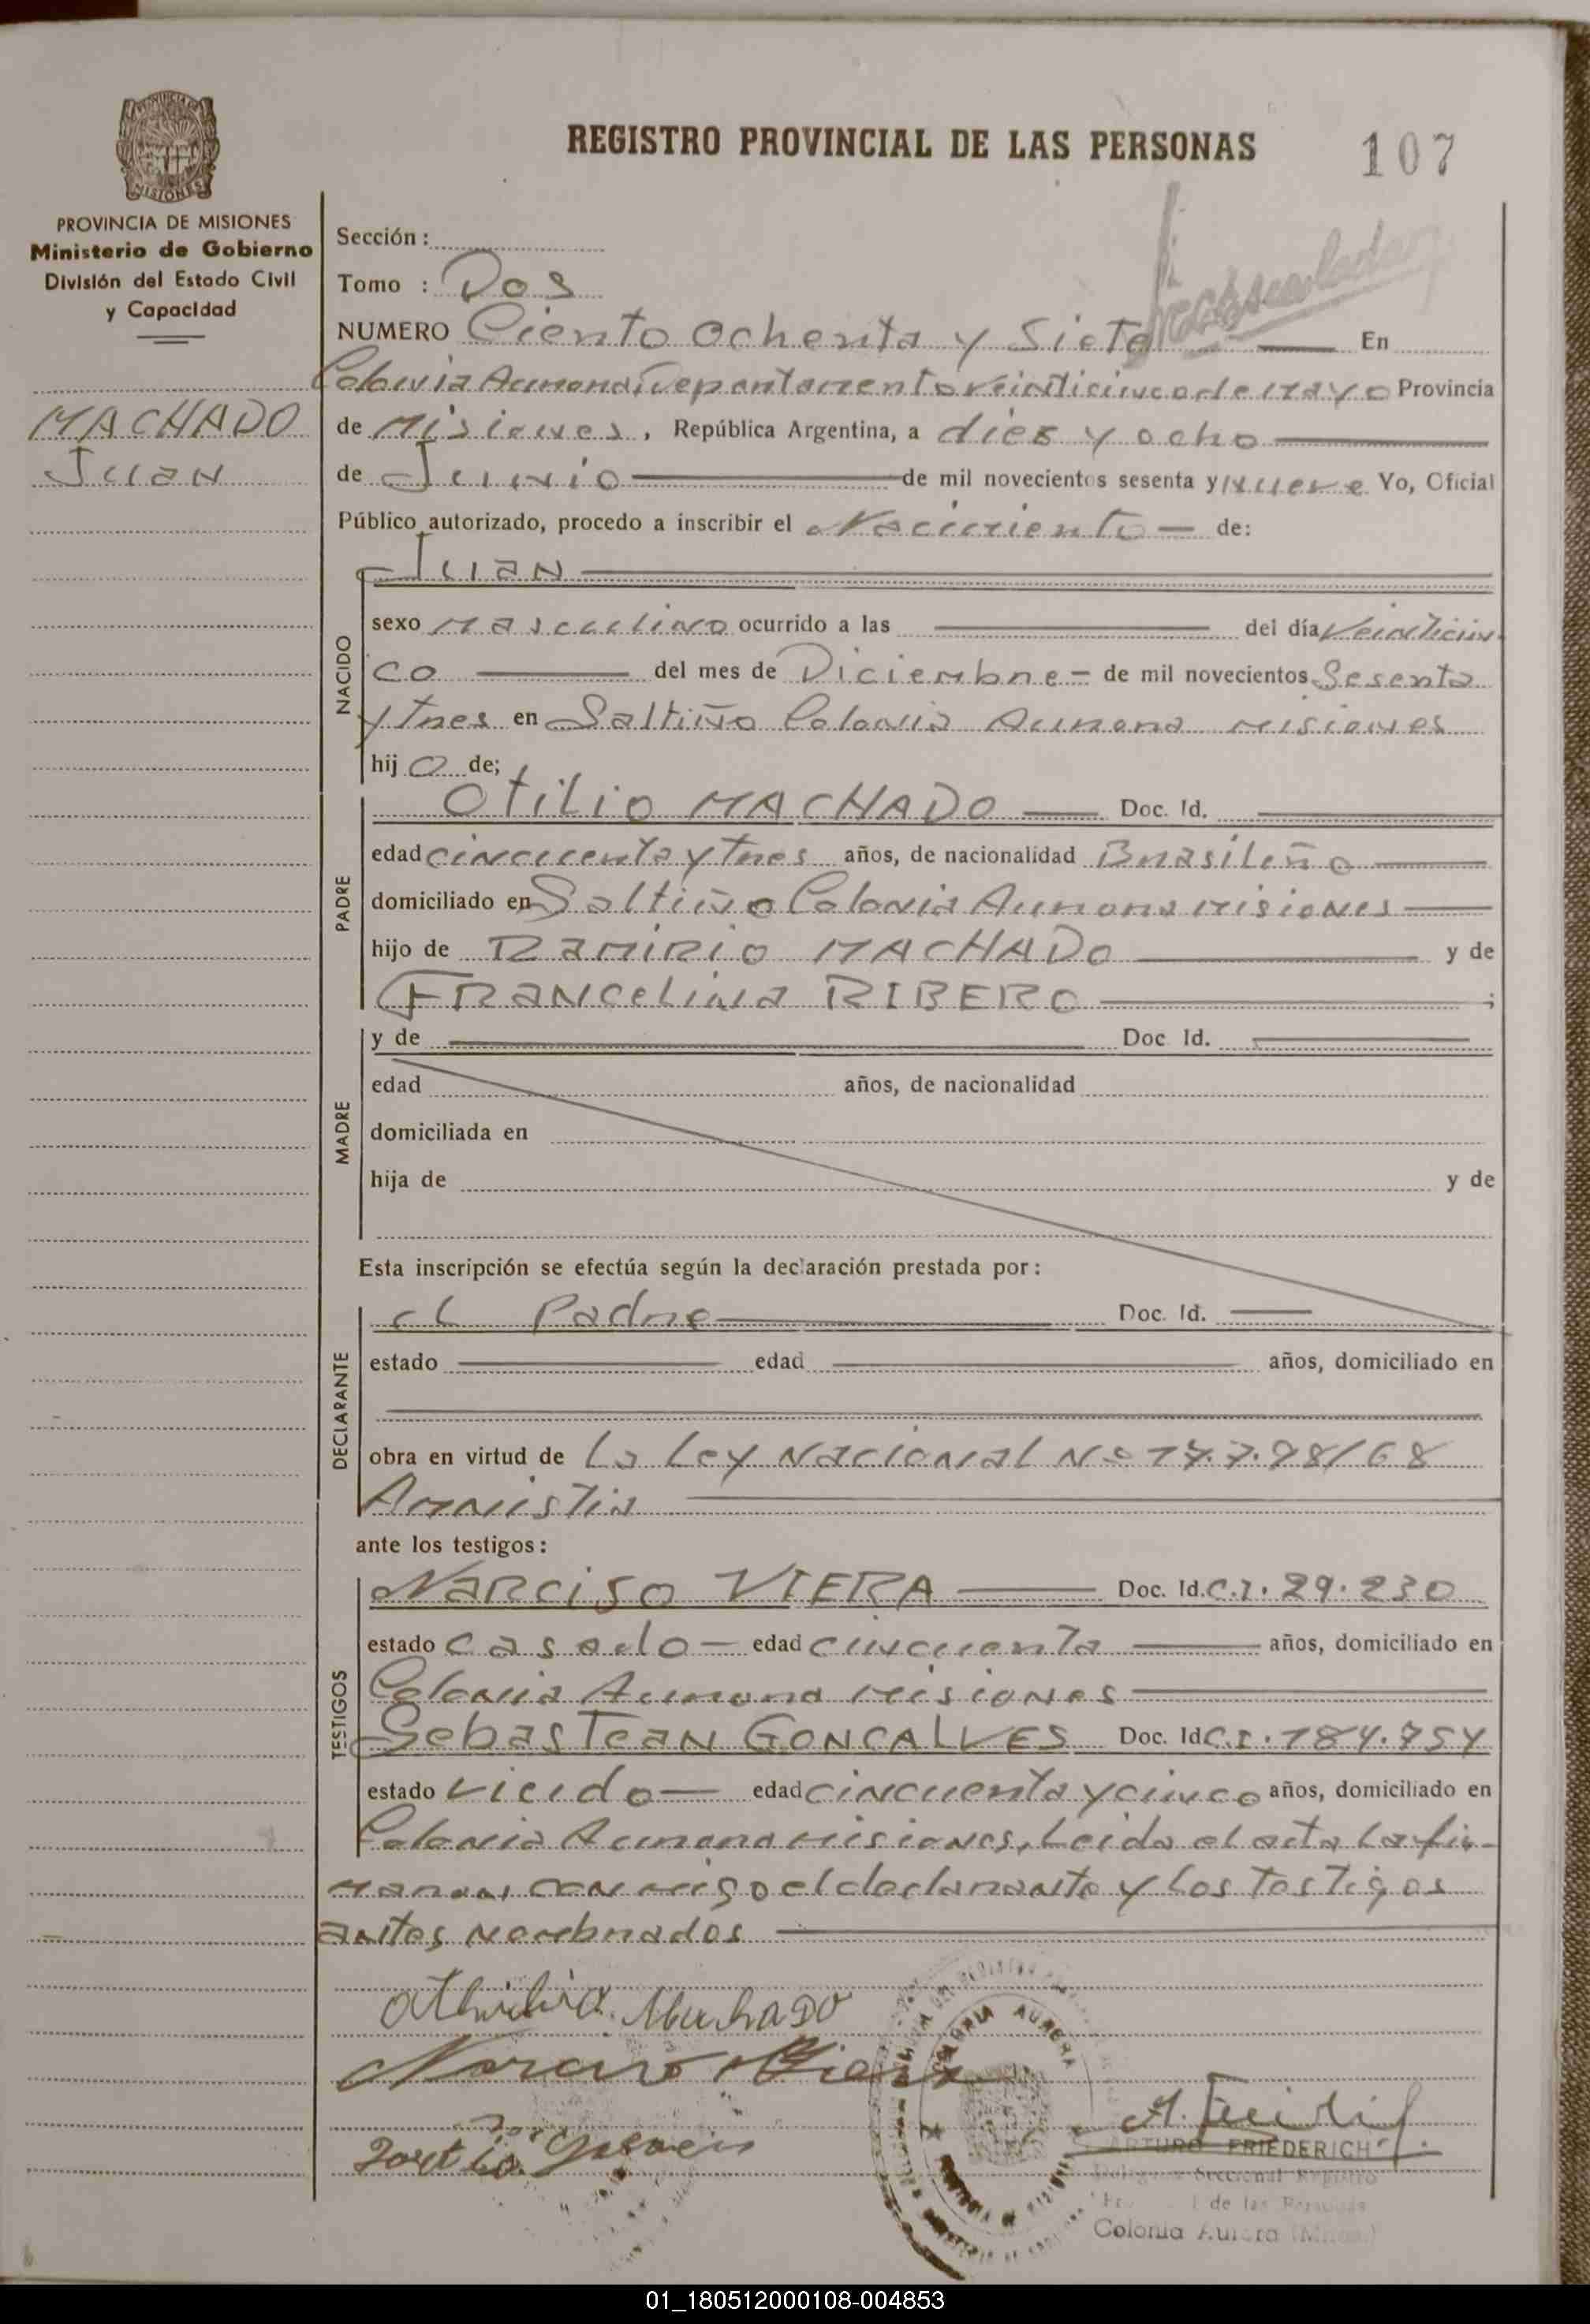 REGISTRO PROVINCIAL DE LAS PERSONAS
107
PROVINCIA DE MISIONES
PROVINCIA DE MISIONES
Ministerio de Gobierno
División del Estado Civil
y Capacidad
MACHADO
Juan
Sección :
Tomo : Dos
NUMERO Ciento ochenta y siete En
Colonia Aurora, Departamento Veinticinco de Mayo Provincia
de Misiones, República Argentina, a diez y ocho
de Junio de mil novecientos sesenta y Nueve Yo, Oficial
Público autorizado, procedo a inscribir el Nacimiento de:
NACIDO
Juan
sexo Masculino ocurrido a las del día Veinticin-
co del mes de Diciembre de mil novecientos Sesenta
y tres en Saltiño Colonia Aurora Misiones
hij o de;
PADRE
Otilio MACHADO Doc. Id.
edad cincuenta y tres años, de nacionalidad Brasileño
domiciliado en Saltiño Colonia Aurora Misiones
hijo de Ramirio MACHADO y de
FRANCELINA RIBERO ;
MADRE
y de Doc. Id.
edad años, de nacionalidad
domiciliada en
hija de y de
Esta inscripción se efectúa según la declaración prestada por:
DECLARANTE
el Padre Doc. Id.
estado edad años, domiciliado en
obra en virtud de La Ley Nacional Nº 17.798/68
Amnistia
ante los testigos:
TESTIGOS
Narciso VIERA Doc. Id. C.I. 29.230
estado casado edad cincuenta años, domiciliado en
Colonia Aurora Misiones
Sebastean GONCALVES Doc. Id C.I. 184.754
estado viudo edad cincuenta y cinco años, domiciliado en
Colonia Aurora Misiones, Leida el acta la fir-
maron conmigo el declarante y los testigos
antes nombrados
Machado
COLONIA AURORA
ARTURO FRIEDERICH
Seccional Registro
de las Personas
Colonia Aurora
01_180512000108-004853